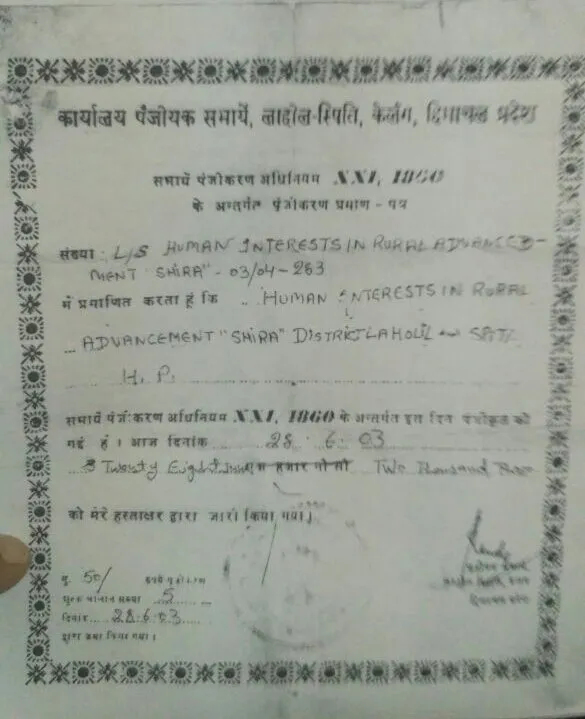 कार्यालय पंजीयक सभायें, लाहौल-स्पिति, केलंग, हिमाचल प्रदेश
सभायें पंजीकरण अधिनियम XXI, 1860
के अन्तर्गत पंजीकरण प्रमाण - पत्र
संख्या : L/S HUMAN INTERESTS IN RURAL ADVANCE-
MENT "SHIRA" - 03/04 - 263
में प्रमाणित करता हूं कि HUMAN INTERESTS IN RURAL
ADVANCEMENT "SHIRA" DISTRICT LAHOUL SPITI
H. P.
सभायें पंजीकरण अधिनियम XXI, 1860 के अन्तर्गत इस दिन पंजीकृत की
गई है । आज दिनांक 28. 6. 03
Twenty Eight हजार नौ सौ Two Thousand
को मेरे हस्ताक्षर द्वारा जारी किया गया।
रु. 50/
शुल्क चालान संख्या 5
दिनांक 28.6.03
शुल्क जमा किया गया ।